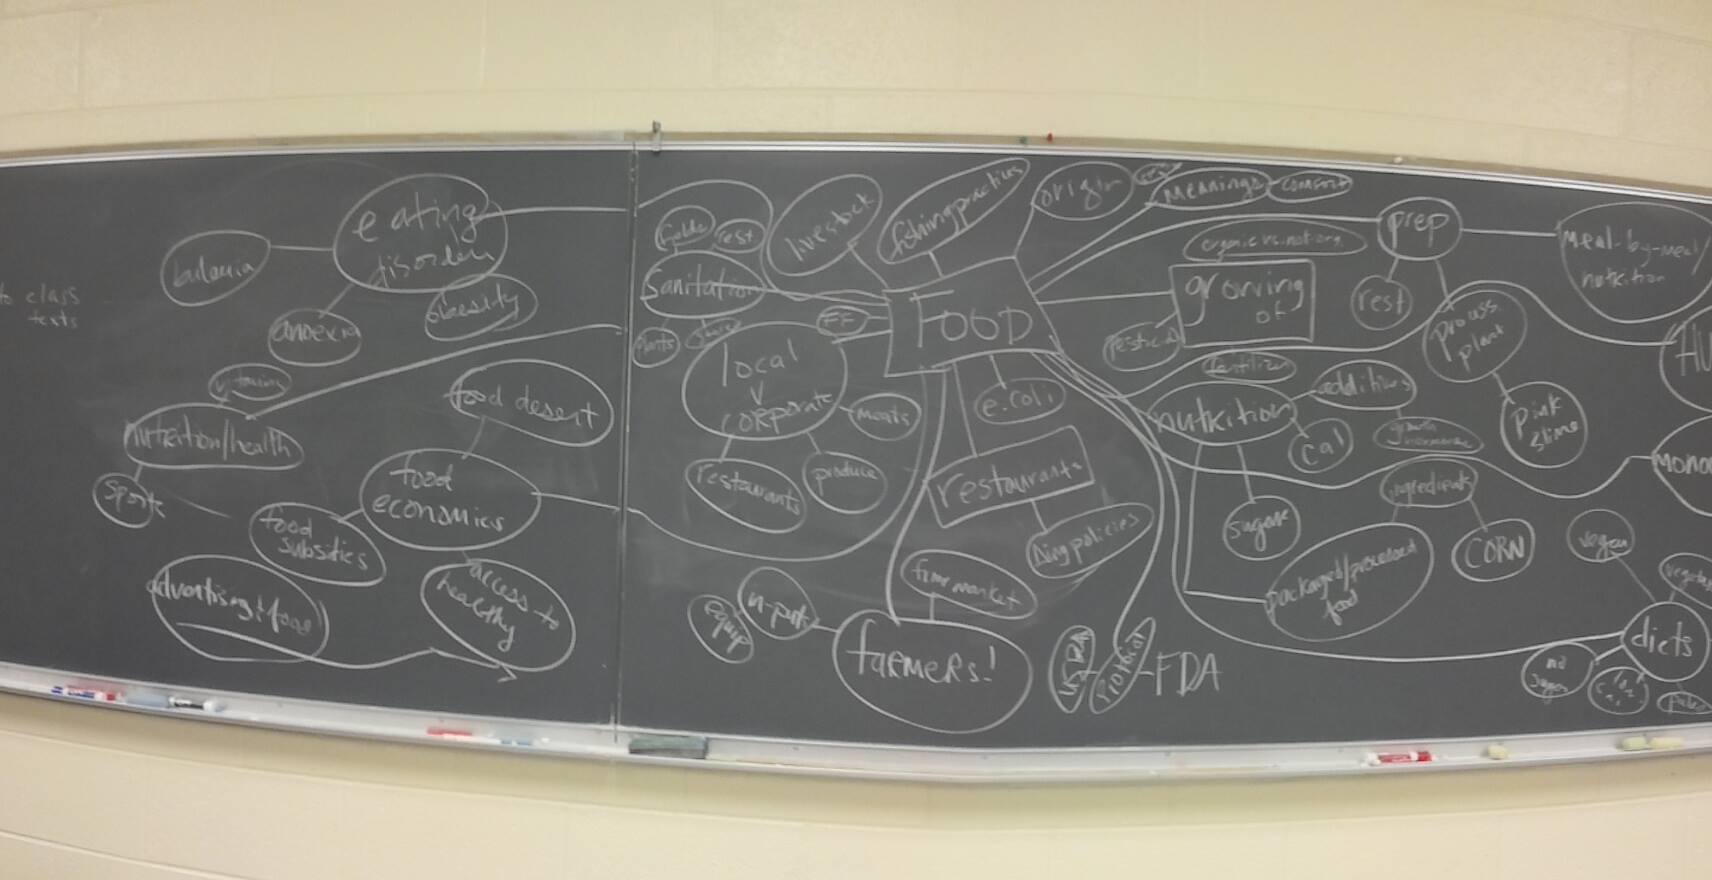 to class
texts
eating
disorders
bulemia
anoexia
obesity
vitamins
nutrition/health
sports
food desert
food
economics
food
subsidies
access to
healthy
advertising + food
fields
rest
Sanitation
plants
livestock
fishing practices
origin
meanings
comfort
FF
FOOD
local
v
corporate
meats
restaurants
produce
e.coli
restaurants
hing policies
farm market
in-puts
equip
farmers!
USDA
political
FDA
organic vs. not org.
growing
of
pesticid
fertilizer
prep
rest
meal-by-meal/
nutrition
process.
plant
pink
slime
nutrition
additives
growth
hormone
cal
sugar
ingredients
CORN
packaged/processed
food
HU
mono
vegan
vegeta
diets
no
sugar